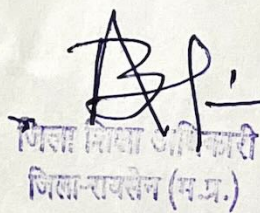 जिला शिक्षा अधिकारी
जिला-रायसेन (म.प्र.)